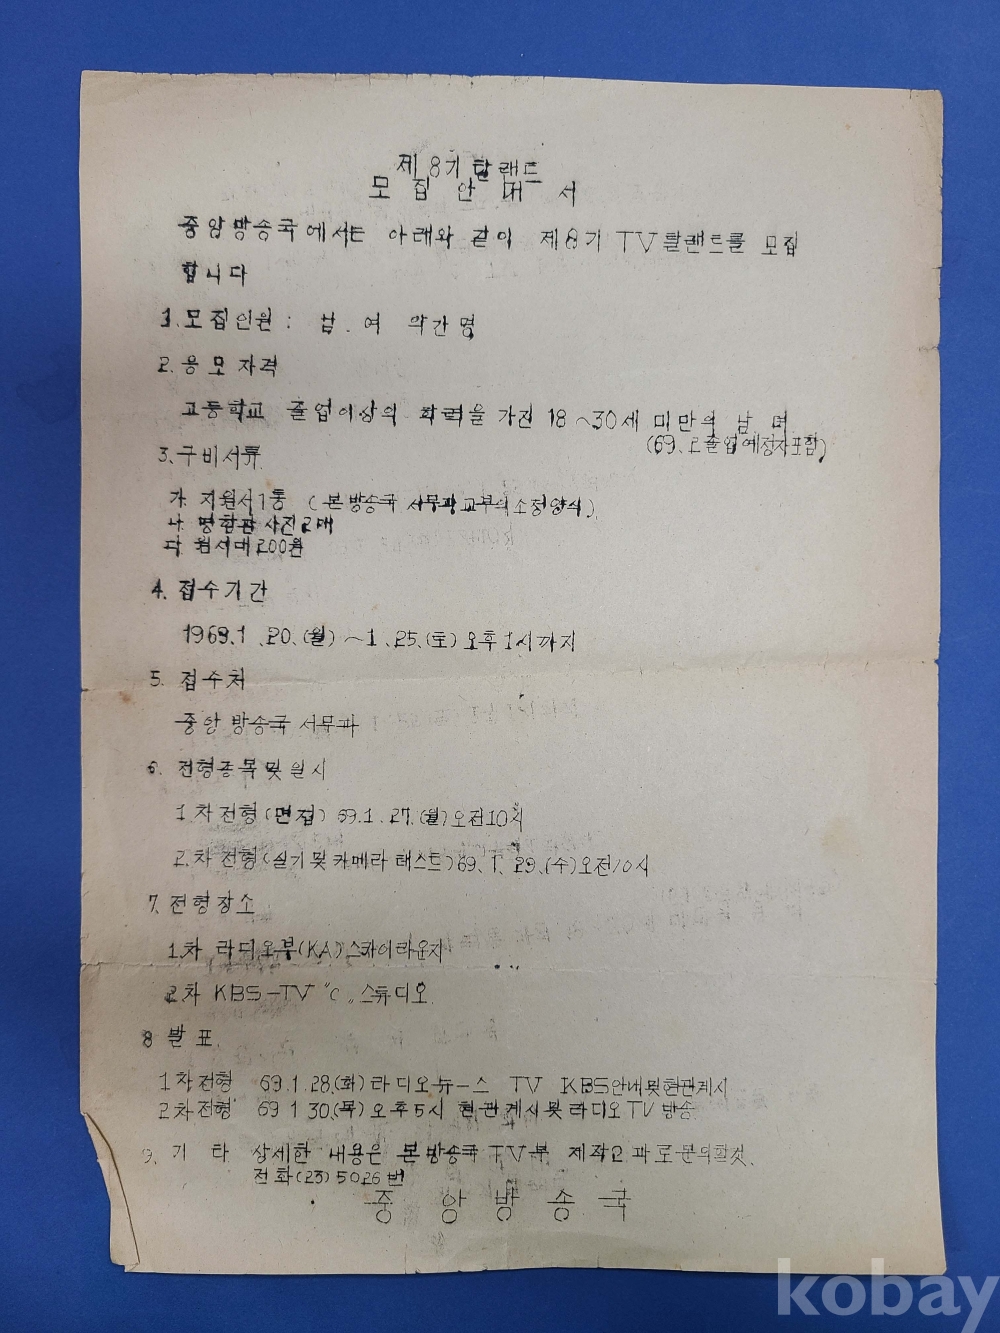 제8기 탈랜트
모집안내서
중앙방송국에서는 아래와 같이 제8기 TV탈랜트를 모집
합니다
1. 모집인원 : 남. 여 약간명
2. 응모자격
고등학교 졸업이상의 학력을 가진 18~30세 미만의 남 여
(69. 2 졸업예정자포함)
3. 구비서류
가. 지원서 1통 (본방송국 서무과교부의소정양식)
나 명함판 사진2매
다 원서대 200원
4. 접수기간
1969. 1. 20. (월) ~ 1. 25. (토) 오후 1시까지
5. 접수처
중앙 방송국 서무과
6. 전형종목및일시
1차전형(면접) 69. 1. 27. (월) 오전10시
2차전형(실기및카메라 테스트) 69. 1. 29. (수)오전10시
7. 전형장소
1차 라디오부(KA)스카이라운지
2차 KBS-TV "C" 스튜디오
8 발표
1차전형 69. 1. 28. (화) 라디오뉴-스 TV KBS안내및현관게시
2차전형 69 1 30. (목) 오후5시 현관게시및라디오TV 방송
9. 기 타 상세한 내용은 본방송국TV부 제작2과로문의할것.
전화(23)5026번
중앙방송국
kobay